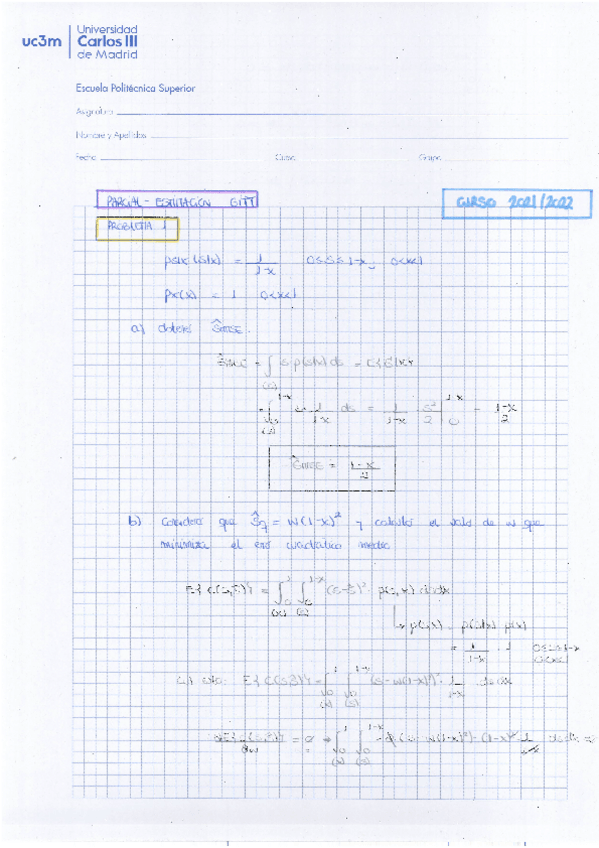 uc3m
Universidad
Carlos III
de Madrid
Escuela Politécnica Superior
Asignatura
Nombre y Apellidos
Fecha Curso Grupo
PARCIAL - ESTIMACIÓN GITT CURSO 2021/2022
PROBLEMA 1
ps|x(s|x) = 1/(1-x) 0≤s≤1-x, 0<x<1
px(x) = 1 0<x<1
a) Obtener ŜMSE.
ŜMSE = ∫(s) s p(s|x) ds = E{s|x}
= ∫₀^(1-x) s 1/(1-x) ds = 1/(1-x) s²/2 |₀^(1-x) = (1-x)/2
ŜMSE = (1-x)/2
b) Considere que Ŝq = w(1-x)² y calcular el valor de w que
minimiza el error cuadrático medio
E{C(s,ŝ)} = ∫₀^1 ∫₀^(1-x) (s-ŝ)² p(s,x) dsdx
↳ p(s,x) = p(s|x) p(x)
= 1/(1-x) · 1 0≤s≤1-x
0<x<1
E{C(s,ŝ)} = ∫₀^1 ∫₀^(1-x) (s-w(1-x)²)² 1/(1-x) dsdx